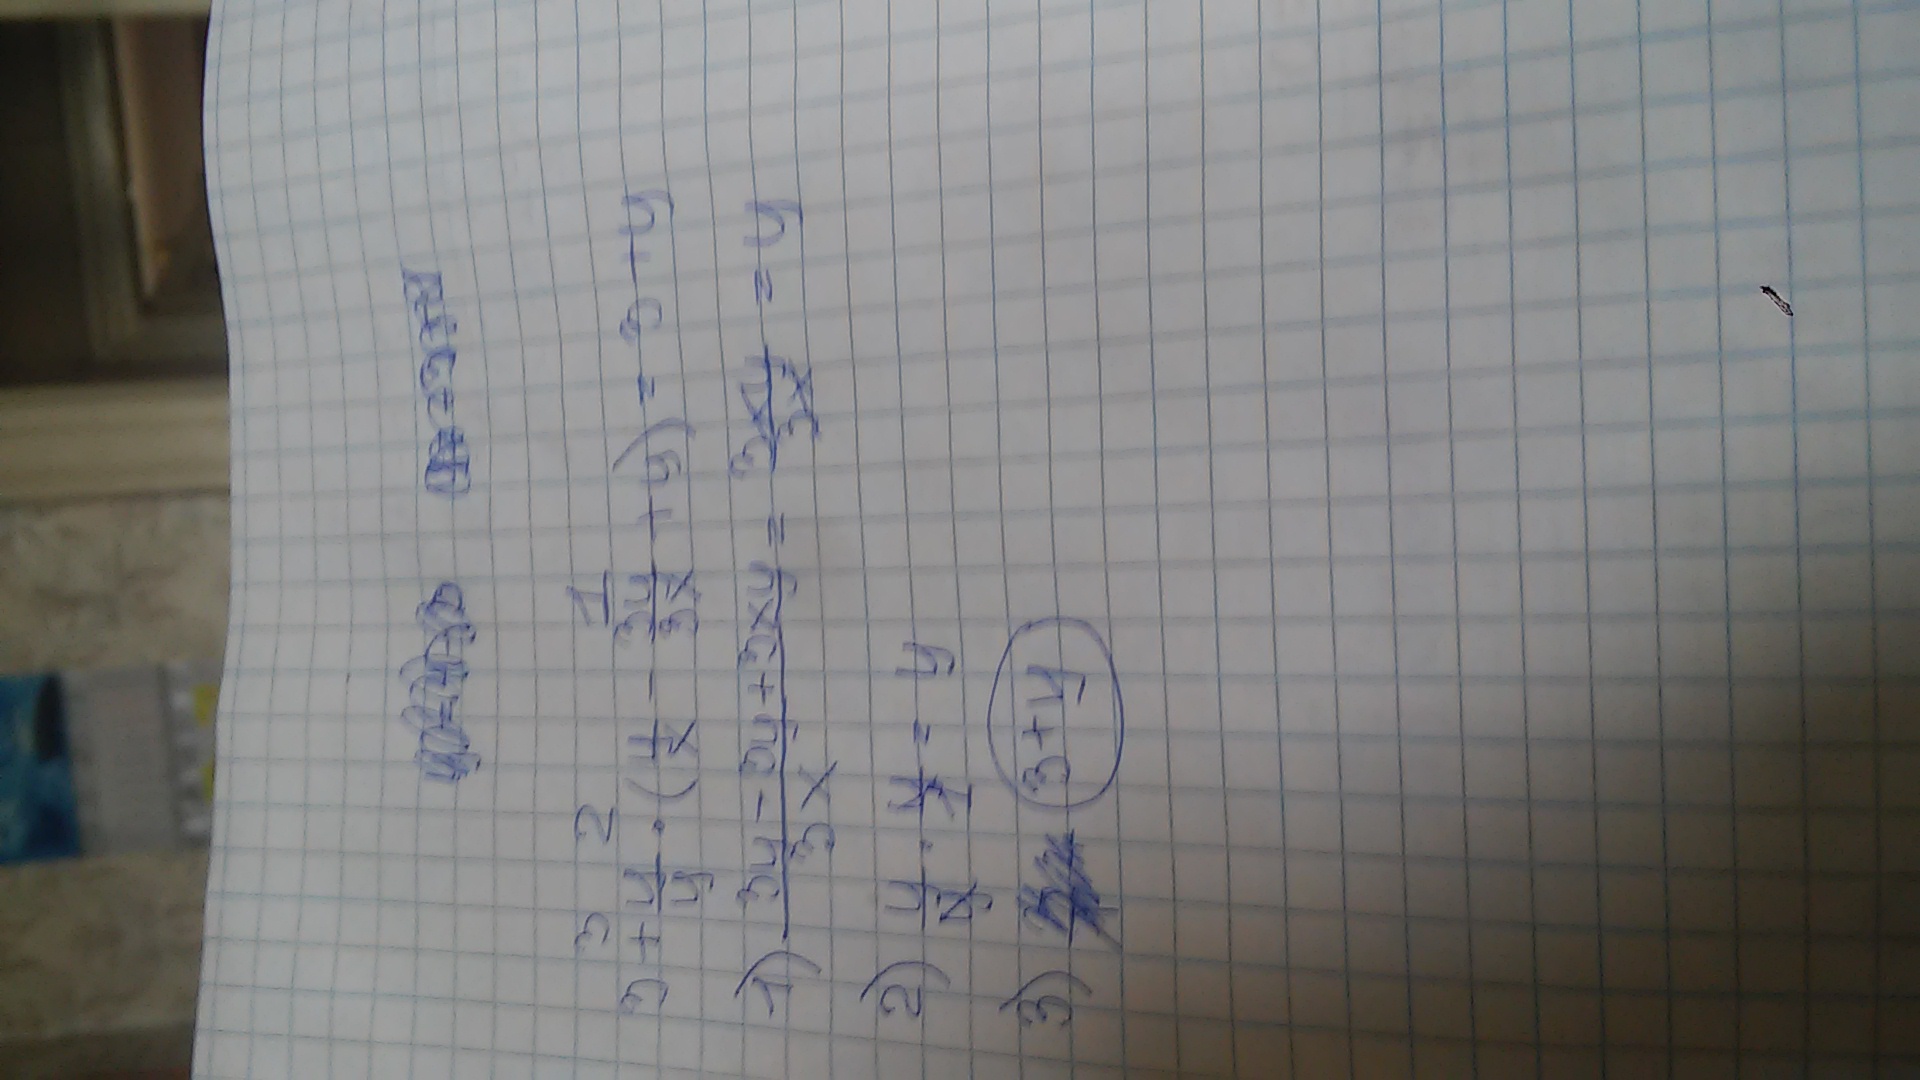 3 2 1
3 + y/y · (y/x - 3y/3x + y) = 3 + y
1) (3y - 3y + 3xy)/3x = 3xy/3x = y
2) y/y · y/1 = y
3) 3 + y